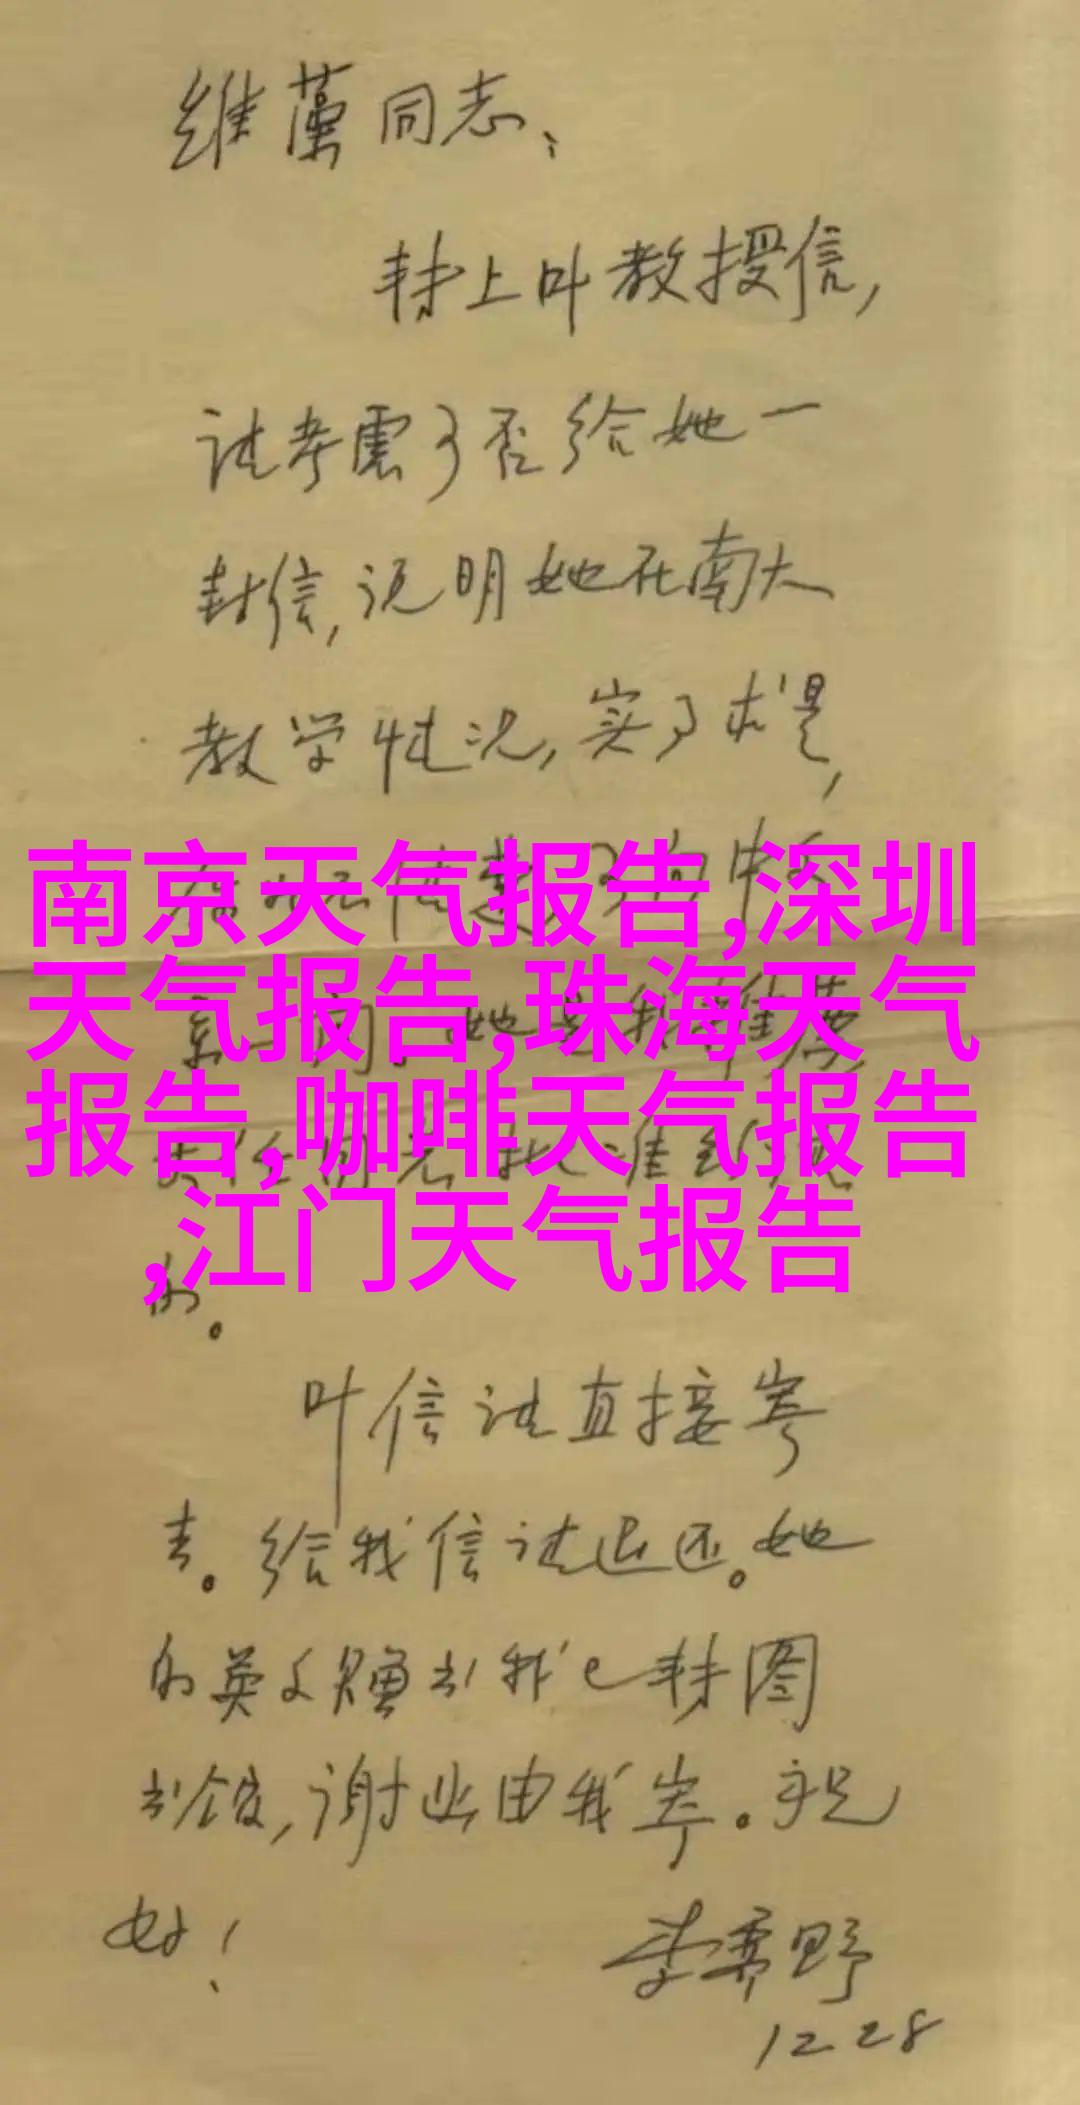 维藻同志：
转上叶教授信，
请考虑可否给她一
封信，说明她在南大
教学情况，实事求是，
南京天气报告,深圳
天气报告,珠海天气
报告,咖啡天气报告
,江门天气报告
的。
叶信请直接寄
去。给我信请退还。她
的英文赠书我已转图
书馆，谢此由我寄。祝
好！
李霁野
12 28